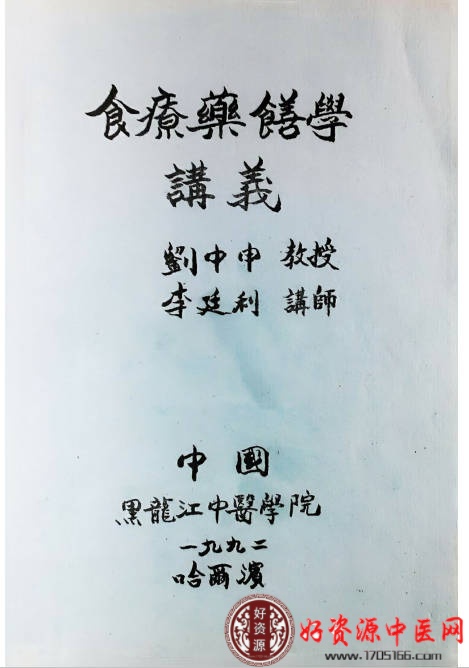 食療藥饍學
講義
劉中申 教授
李廷利 講師
中國
黑龍江中醫學院
一九九二
哈爾濱
好资源
好资源中医网
www.1705166.com